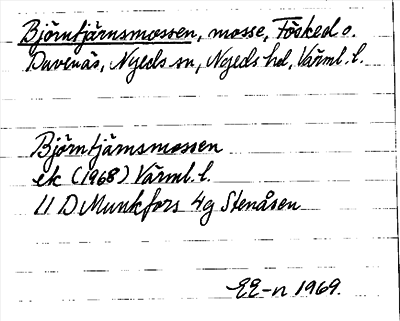 Björntjärnsmossen, mosse, Fösked o.
Davenäs, Nyeds sn, Nyeds hd, Värml. l.
Björntjärnsmossen
ek (1968) Värml. l.
11 D Munkfors 4g Stenåsen
EE-n 1969.